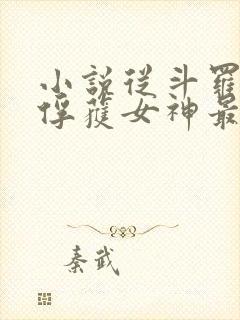 小說從斗羅
俘獲女神最
秦武